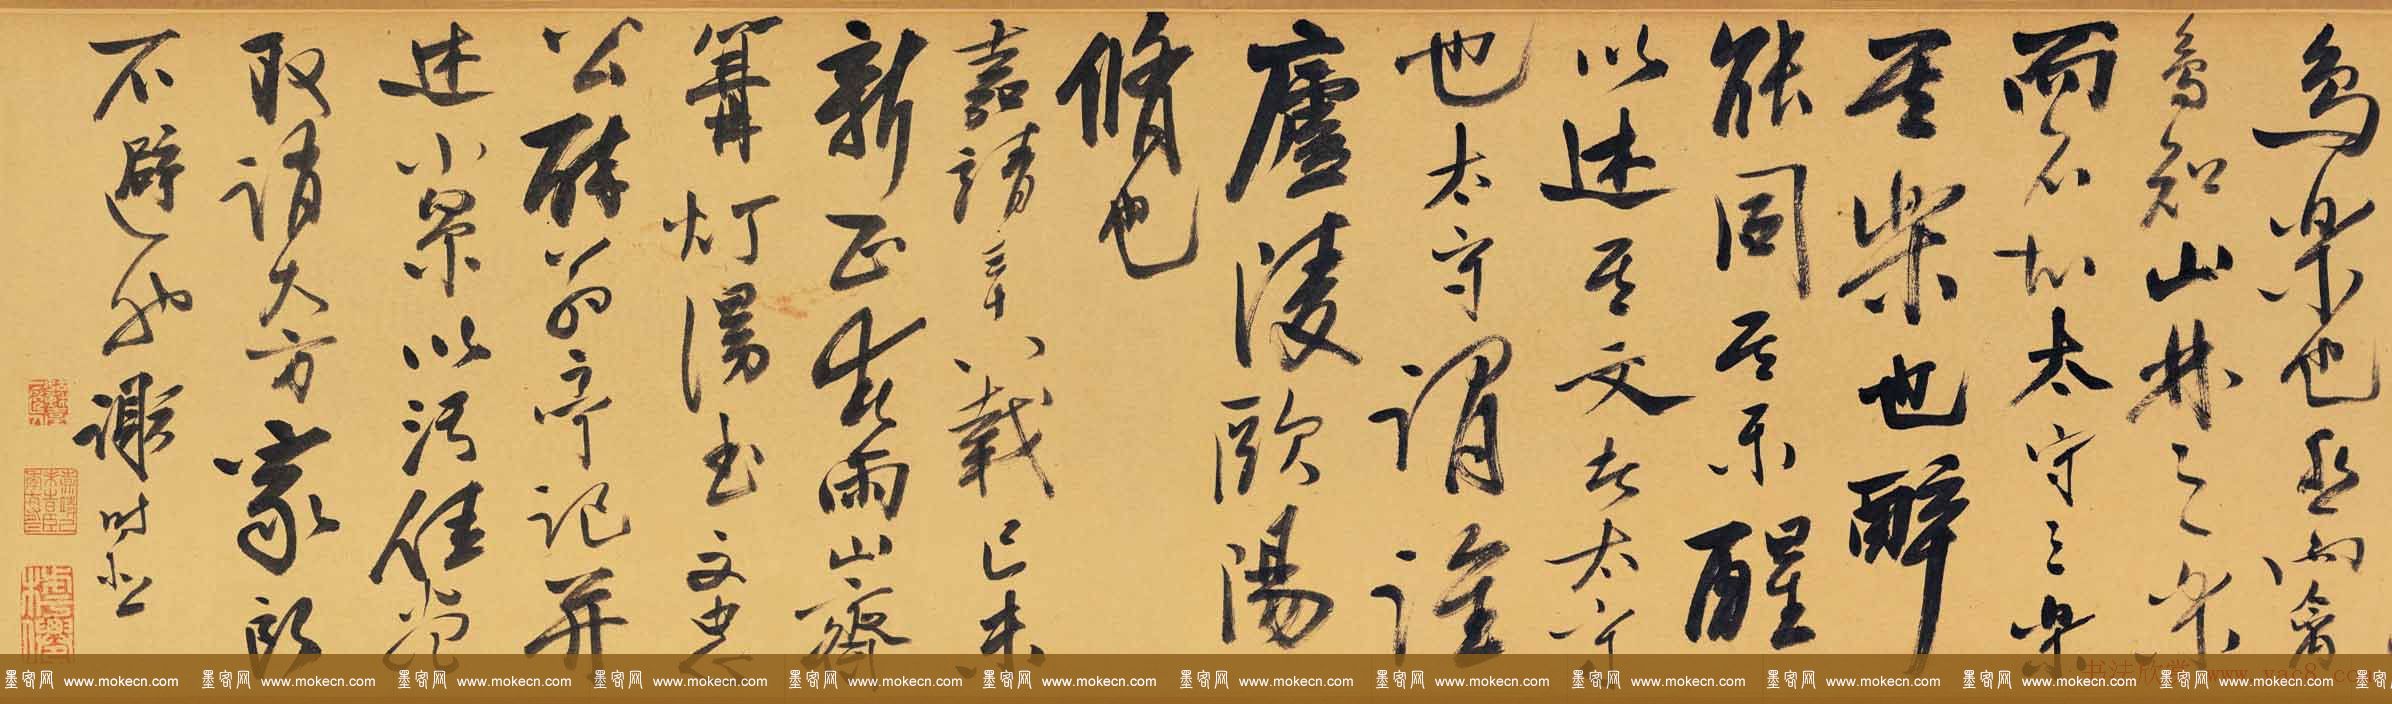 鳥樂也然而禽
鳥知山林之樂
而不知太守之樂
其樂也醉
能同其樂醒
以述其文者太守
也太守謂誰
廬陵歐陽
脩也
嘉靖三十八載己未
新正春雨山齋
篝灯漫书文忠
公醉翁亭記并
述小景以污佳卷
取誚大方家所
不避也謝时臣
墨客网 www.mokecn.com 墨客网 www.mokecn.com 墨客网 www.mokecn.com 墨客网 www.mokecn.com 墨客网 www.mokecn.com 墨客网 www.mokecn.com 墨客网 www.mokecn.com 墨客网 www.mokecn.com 墨客网 www.mokecn.com 墨客网 www.mokecn.com 墨客网 www.mokecn.com 墨客网 www.mokecn.com
书法欣赏 www.yac8.com